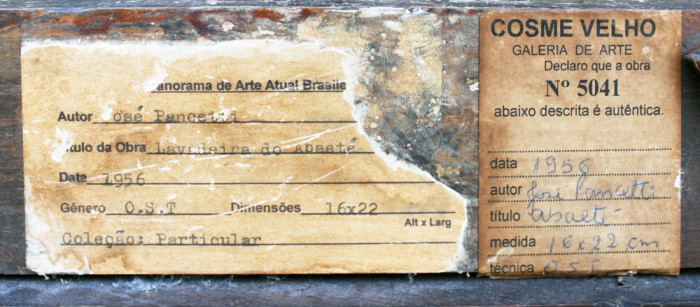 anorama de Arte Atual Brasile
Autor José Pancetti
tulo da Obra Lavadeira do Abaeté
Data 1956
Gênero O.S.T Dimensões 16x22
Alt x Larg
Coleção: Particular
COSME VELHO
GALERIA DE ARTE
Declaro que a obra
Nº 5041
abaixo descrita é autêntica.
data 1956
autor José Pancetti
título Abaeté
medida 16x22 cm
técnica O S T